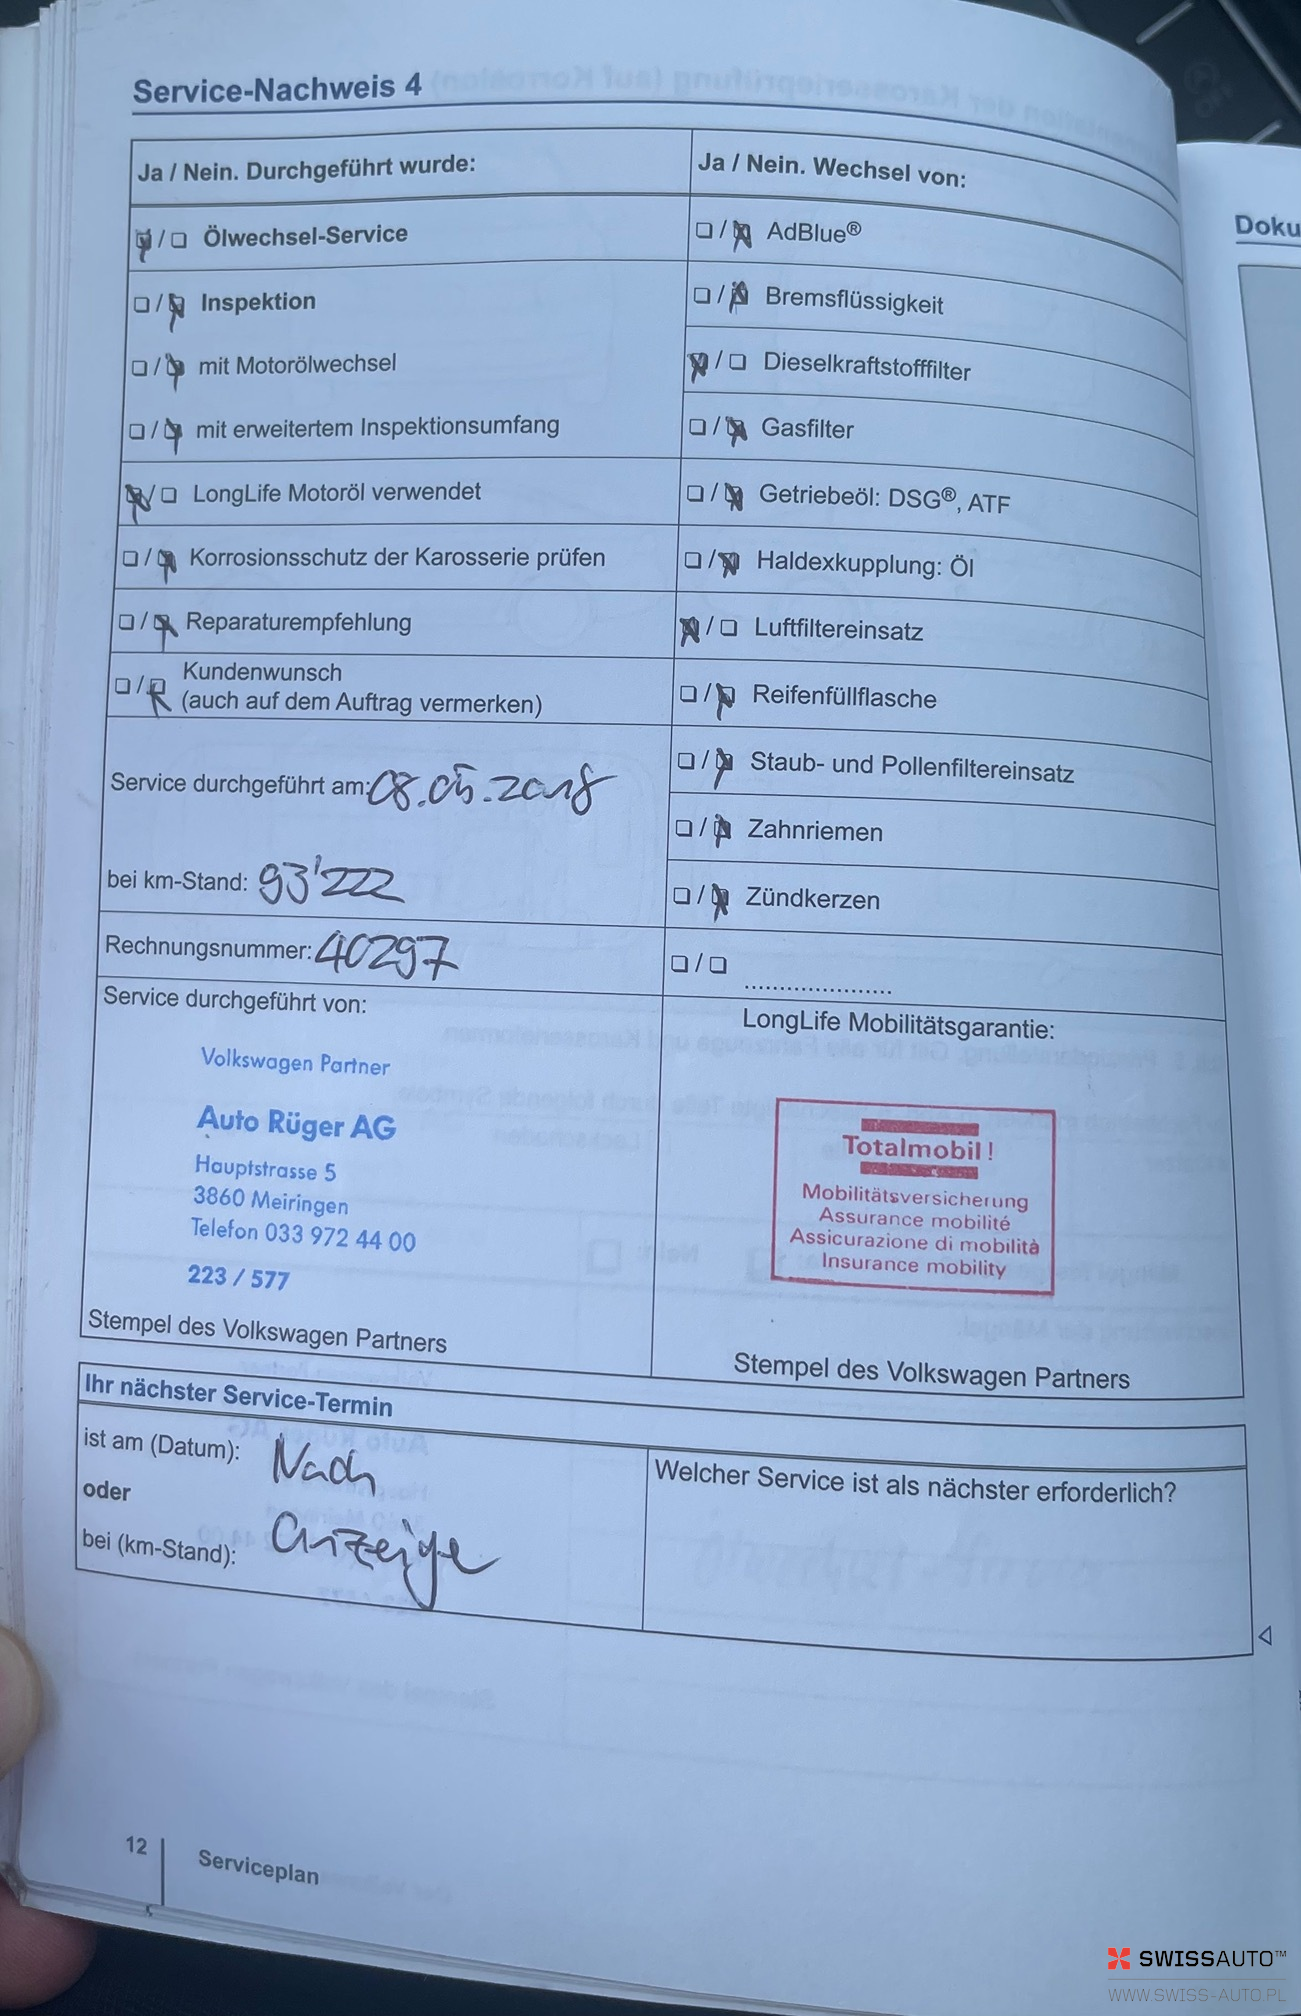 Service-Nachweis 4
Ja / Nein. Durchgeführt wurde:
☒ / ☐ Ölwechsel-Service
☐ / ☒ Inspektion
☐ / ☒ mit Motorölwechsel
☐ / ☒ mit erweitertem Inspektionsumfang
☒ / ☐ LongLife Motoröl verwendet
☐ / ☒ Korrosionsschutz der Karosserie prüfen
☐ / ☒ Reparaturempfehlung
☐ / ☒ Kundenwunsch
(auch auf dem Auftrag vermerken)
Service durchgeführt am: 08.05.2018
bei km-Stand: 93'222
Rechnungsnummer: 40297
Service durchgeführt von:
Volkswagen Partner
Auto Rüger AG
Hauptstrasse 5
3860 Meiringen
Telefon 033 972 44 00
223 / 577
Stempel des Volkswagen Partners
Ja / Nein. Wechsel von:
☐ / ☒ AdBlue®
☐ / ☒ Bremsflüssigkeit
☒ / ☐ Dieselkraftstofffilter
☐ / ☒ Gasfilter
☐ / ☒ Getriebeöl: DSG®, ATF
☐ / ☒ Haldexkupplung: Öl
☒ / ☐ Luftfiltereinsatz
☐ / ☒ Reifenfüllflasche
☐ / ☒ Staub- und Pollenfiltereinsatz
☐ / ☒ Zahnriemen
☐ / ☒ Zündkerzen
☐ / ☐ .....................
LongLife Mobilitätsgarantie:
Totalmobil!
Mobilitätsversicherung
Assurance mobilité
Assicurazione di mobilità
Insurance mobility
Stempel des Volkswagen Partners
Ihr nächster Service-Termin
ist am (Datum): Nach
oder
bei (km-Stand): Anzeige
Welcher Service ist als nächster erforderlich?
12
Serviceplan
Doku
SWISSAUTO™
WWW.SWISS-AUTO.PL